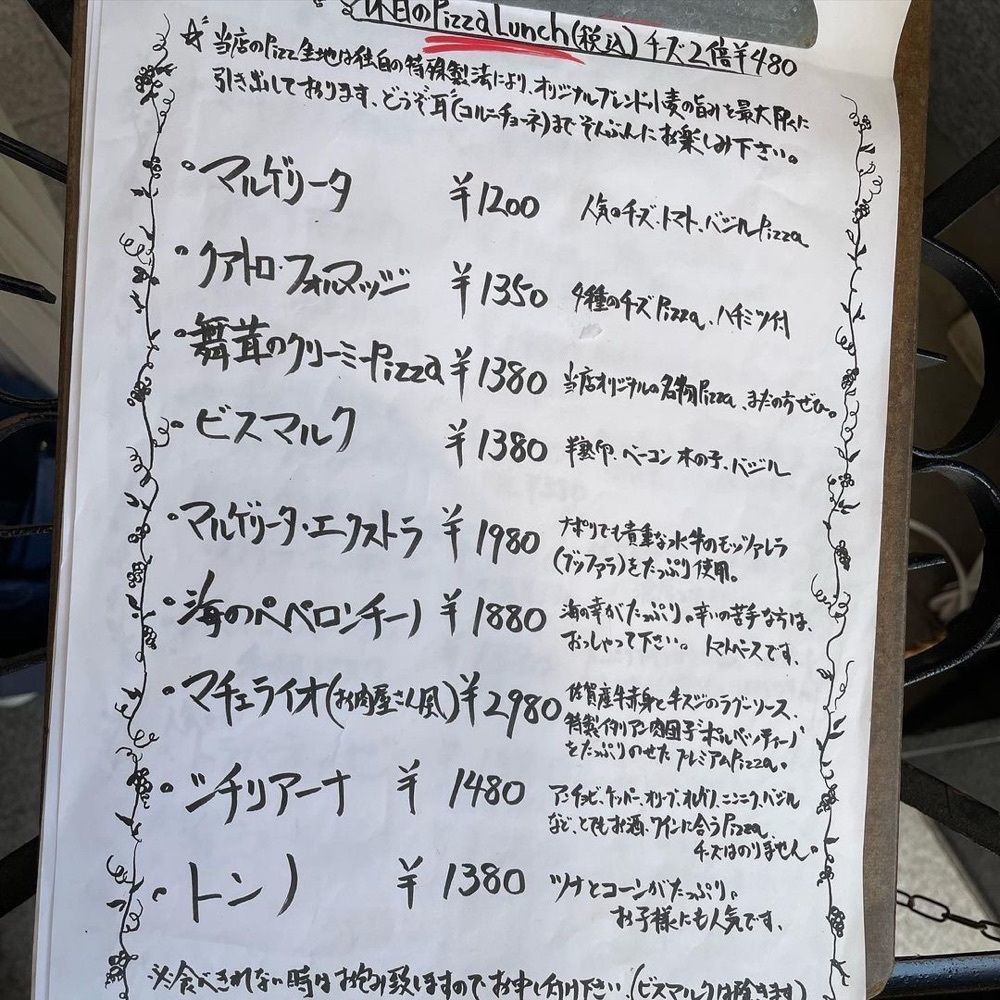 休日のPizza Lunch(税込)チーズ2倍¥480
☆当店のPizz生地は独自の特殊製法により、オリジナルブレンド小麦の旨みを最大限に
引き出しております。どうぞ耳(コルニチョーネ)までぞんぶんにお楽しみ下さい。
・マルゲリータ ¥1200 人気のチーズ、トマト、バジルPizza
・クアトロ・フォルマッジ ¥1350 4種のチーズPizza、ハチミツ付
・舞茸のクリーミーPizza ¥1380 当店オリジナルの名物Pizza、まだの方ぜひ。
・ビスマルク ¥1380 半熟卵、ベーコン木の子、バジル
・マルゲリータ・エクストラ ¥1980 ナポリでも貴重な水牛のモッツァレラ
(ブッファラ)をたっぷり使用。
・海のペペロンチーノ ¥1880 海の幸がたっぷり。辛いの苦手な方は、
おっしゃって下さい。トマトベースです。
・マチェライオ(お肉屋さん風) ¥2980 佐賀産牛赤身と牛スジのラグーソース、
特製イタリアン肉団子"ポルペッティーノ"
をたっぷりのせたプレミアムPizza。
・シチリアーナ ¥1480 アンチョビ、ケッパー、オリーブ、オレガノ、ニンニク、バジル
など、とてもお酒、ワインに合うPizza
チーズはのりません。
・トンノ ¥1380 ツナとコーンがたっぷり。
お子様にも人気です。
※食べきれない時はお包み致しますのでお申し付け下さい。(ビスマルクは除きます)